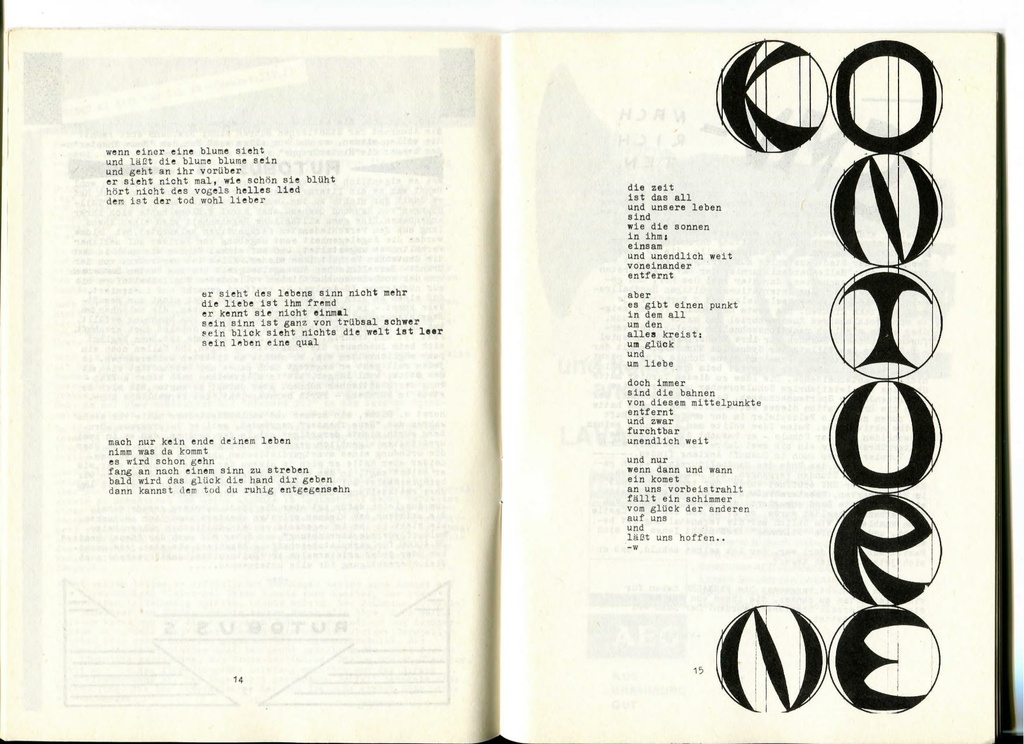 wenn einer eine blume sieht
und läßt die blume blume sein
und geht an ihr vorüber
er sieht nicht mal, wie schön sie blüht
hört nicht des vogels helles lied
dem ist der tod wohl lieber
er sieht des lebens sinn nicht mehr
die liebe ist ihm fremd
er kennt sie nicht einmal
sein sinn ist ganz von trübsal schwer
sein blick sieht nichts die welt ist leer
sein leben eine qual
mach nur kein ende deinem leben
nimm was da kommt
es wird schon gehn
fang an nach einem sinn zu streben
bald wird das glück die hand dir geben
dann kannst dem tod du ruhig entgegensehn
14
die zeit
ist das all
und unsere leben
sind
wie die sonnen
in ihm:
einsam
und unendlich weit
voneinander
entfernt
aber
es gibt einen punkt
in dem all
um den
alles kreist:
um glück
und
um liebe
doch immer
sind die bahnen
von diesem mittelpunkte
entfernt
und zwar
furchtbar
unendlich weit
und nur
wenn dann und wann
ein komet
an uns vorbeistrahlt
fällt ein schimmer
vom glück der anderen
auf uns
und
läßt uns hoffen..
-w
15
KONTUREN